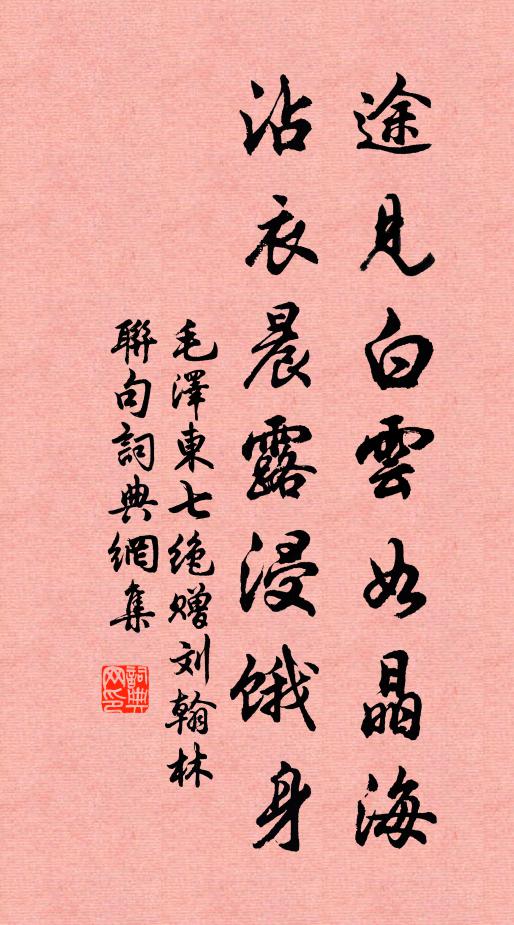 途見白雲如晶海
沾衣晨露浸餓身
毛澤東七絶赠刘翰林
聯句詞典網集
詞典网印